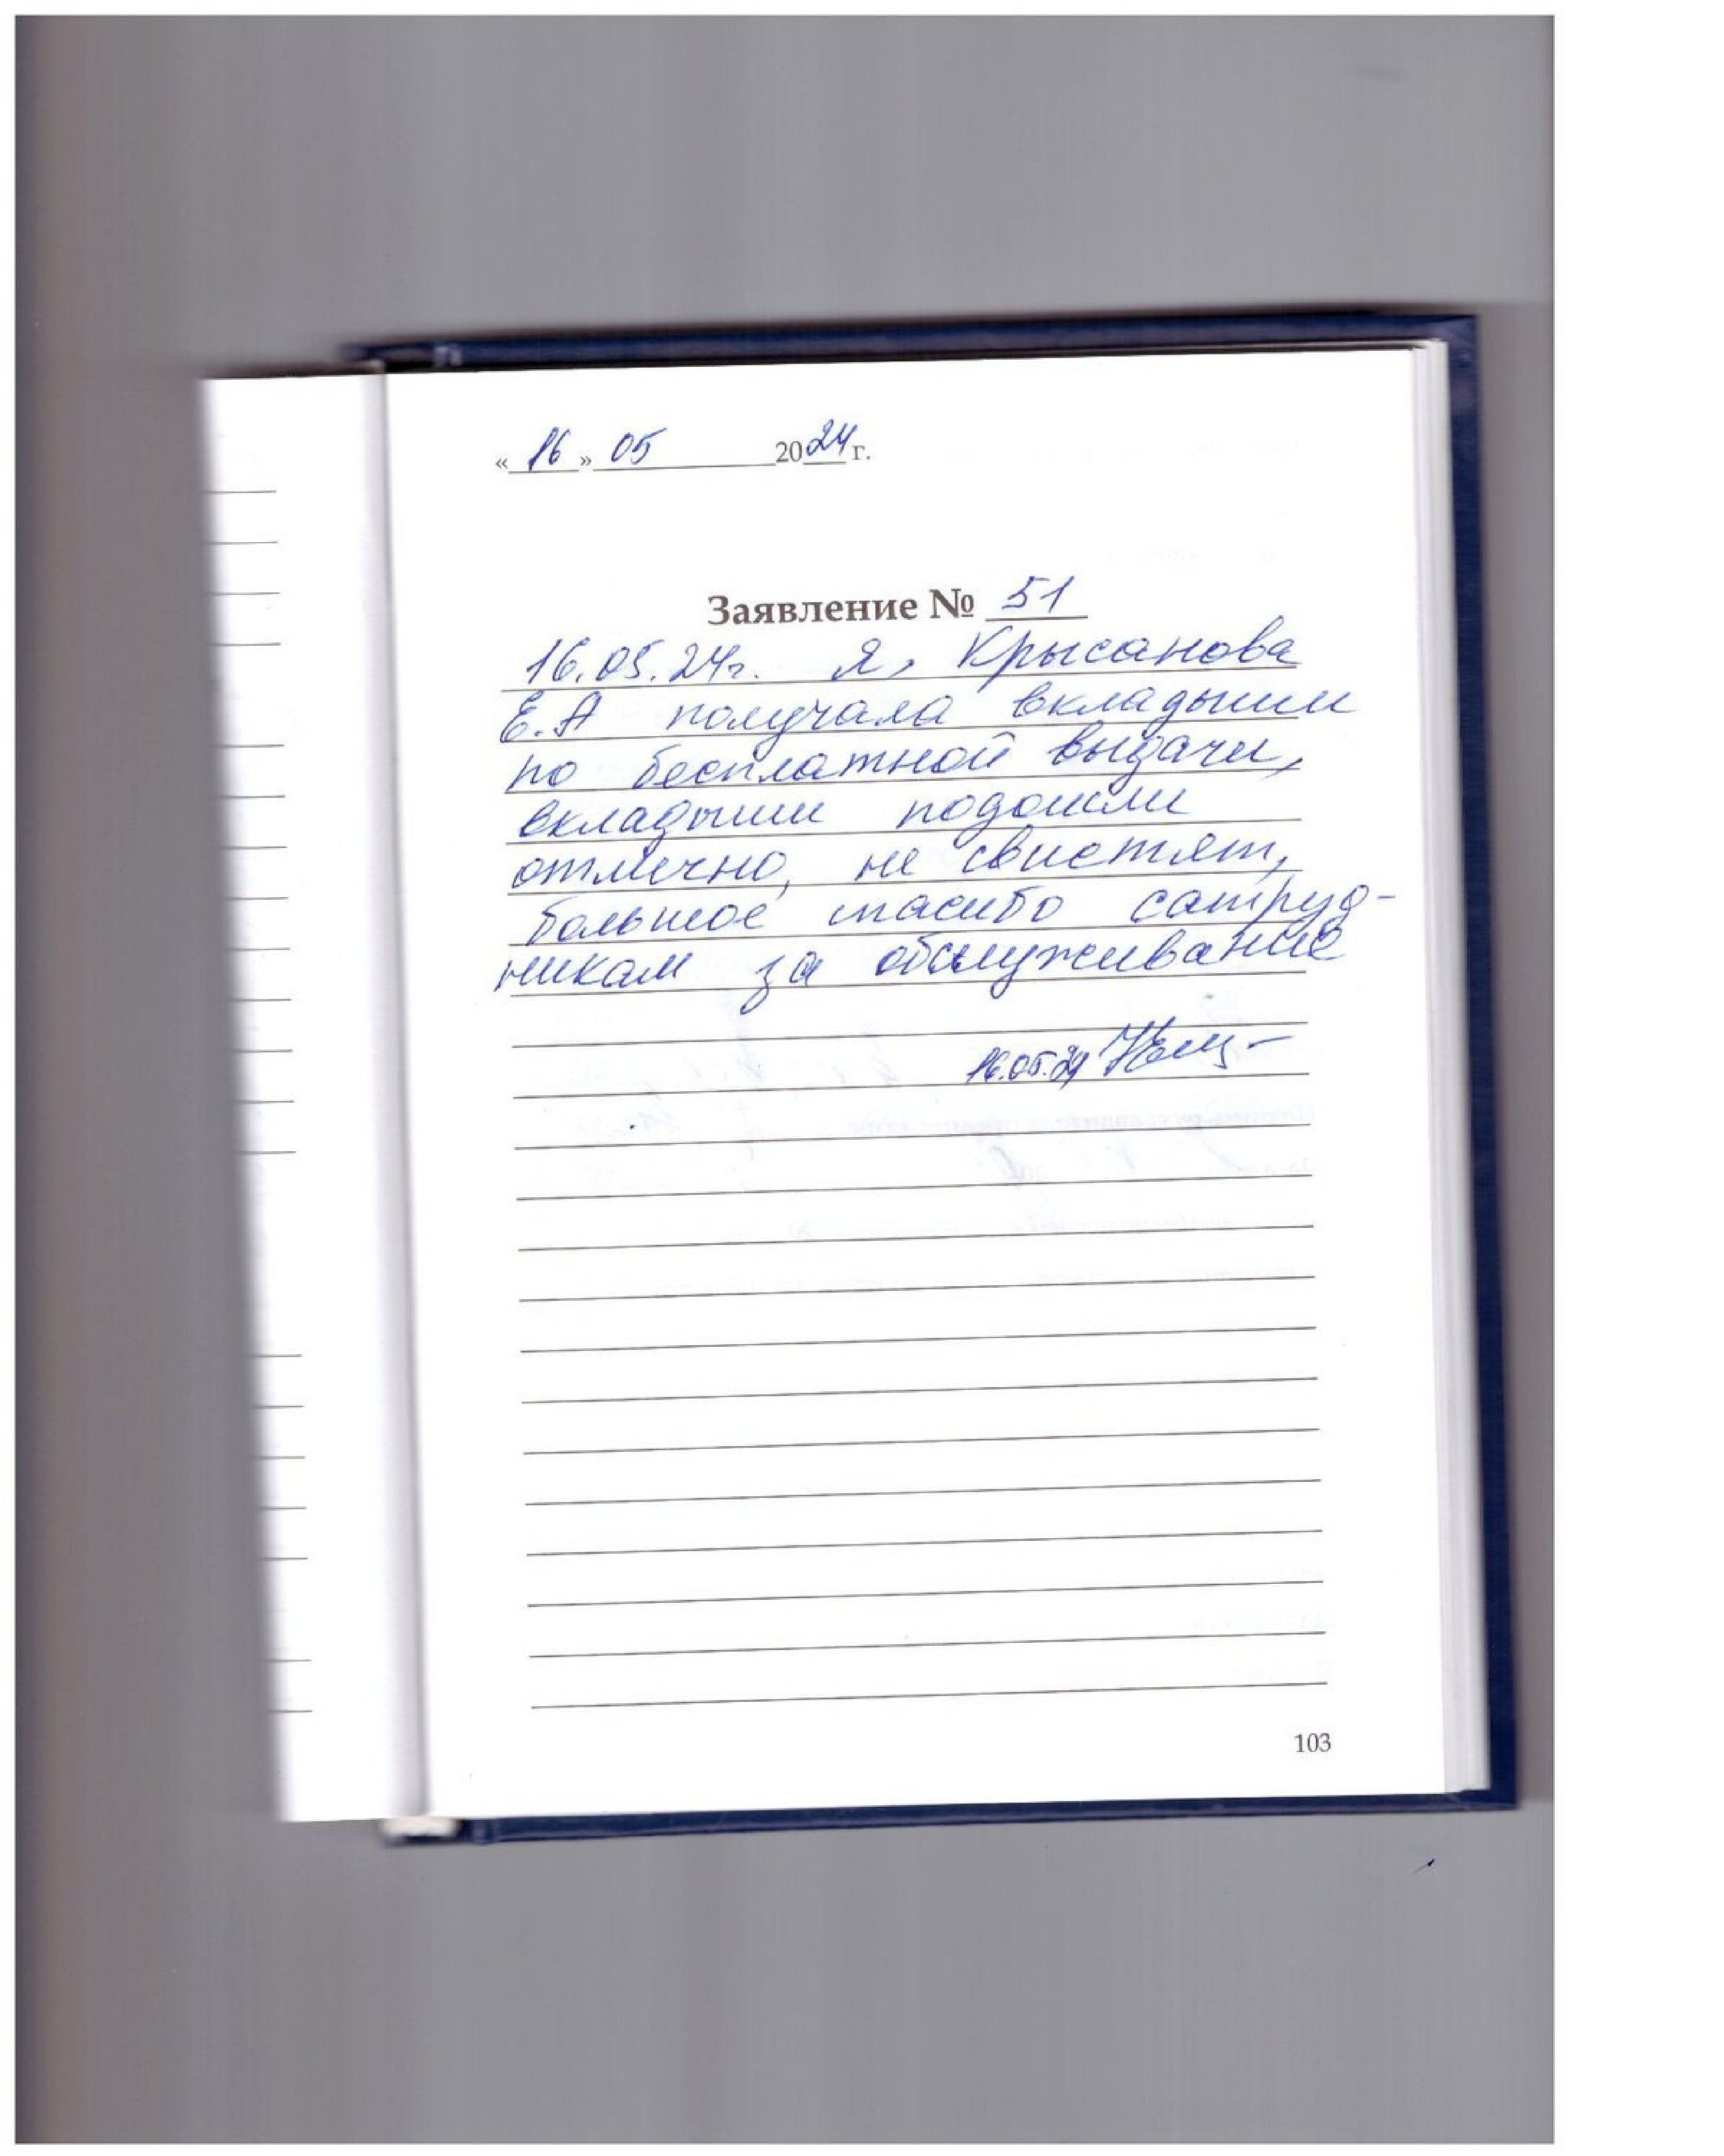 «16» 05 2024 г.
Заявление № 51
16.05.24г. Я, Крысанова
Е.А получала вкладыши
по бесплатной выдачи,
вкладыши подошли
отлично, не свистят,
большое спасибо сатруд-
никам за обслуживание
16.05.24
103